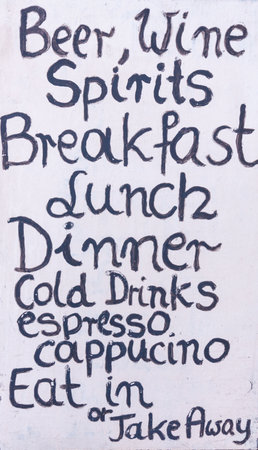 Beer, Wine
Spirits
Breakfast
Lunch
Dinner
Cold Drinks
espresso
cappucino
Eat in
or Take Away